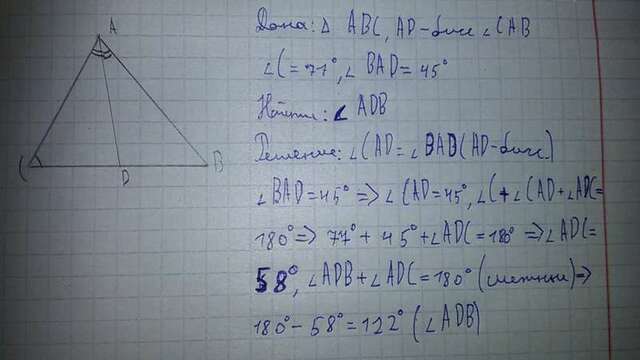 A
C
D
B
Дана: Δ ABC, AD-бисс ∠CAB
∠C=77°, ∠BAD=45°
Найти: ∠ADB
Решение: ∠CAD=∠BAD(AD-бисс)
∠BAD=45°=>∠CAD=45°, ∠C+∠CAD+∠ADC=
180°=>77°+45°+∠ADC=180°=>∠ADC=
58°, ∠ADB+∠ADC=180°(смежные)=>
180°-58°=122°(∠ADB)